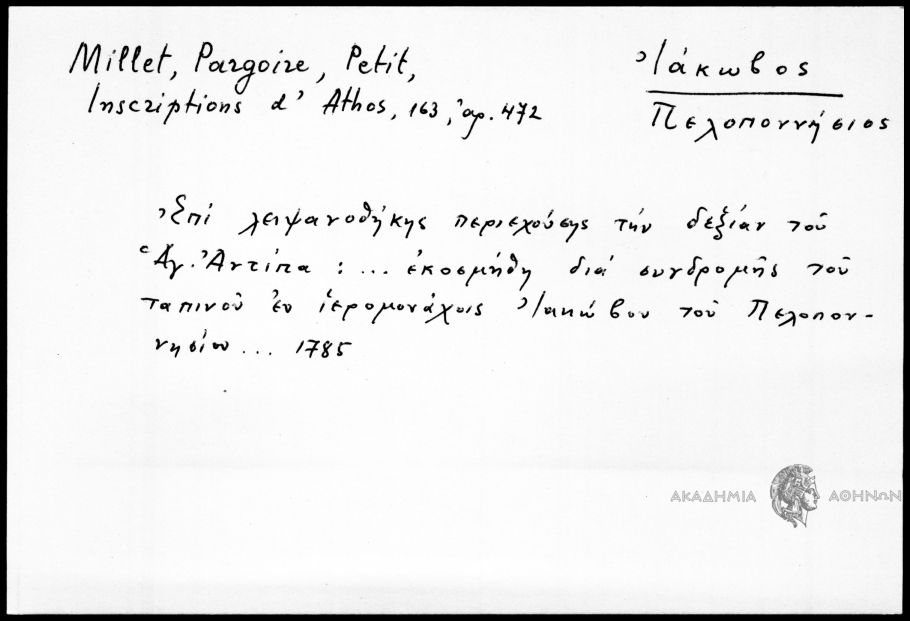 Millet, Pargoire, Petit,
Inscriptions d' Athos, 163, ἀρ. 472
Ἰάκωβος
Πελοποννήσιος
Ἐπί λειψανοθήκης περιεχούσης τήν δεξιάν τοῦ
Ἁγ. Ἀντίπα : ... ἐκοσμήθη διά συνδρομῆς τοῦ
ταπινοῦ ἐν ἱερομονάχοις Ἰακώβου τοῦ Πελοπον-
νησίου ... 1785
ΑΚΑΔΗΜΙΑ ΑΘΗΝΩΝ